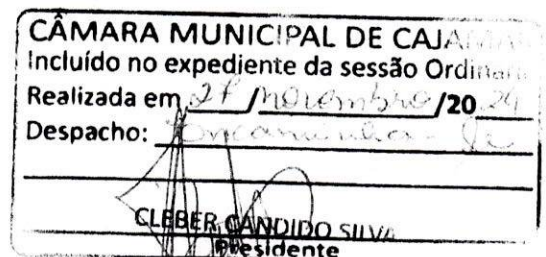 CÂMARA MUNICIPAL DE CAJAMAR
Incluído no expediente da sessão Ordinaria
Realizada em 27 / novembro /20 24
Despacho: Encaminha-se
CLEBER CANDIDO SILVA
Presidente